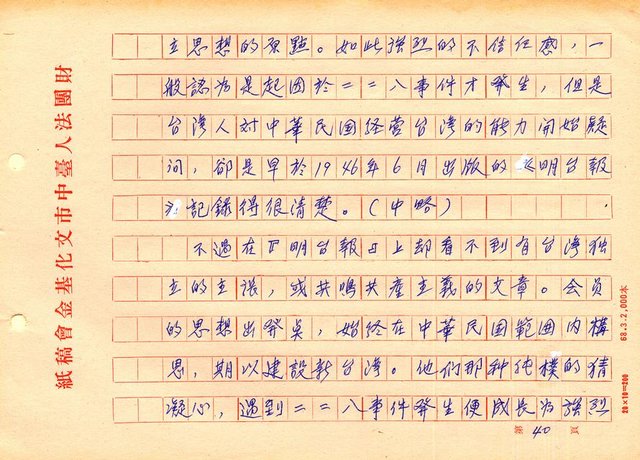 立思想的原點。如此強烈的不信任感，一
般認為是起因於二二八事件才發生，但是
台湾人对中華民国経営台湾的能力開始疑
问，卻是早於1946年6月出版的明台報
記録得很清楚。（中略）
不過在『明台報』上却看不到有台湾独
立的主張，或共鳴共產主義的文章。会员
的思想出発奌，始终在中華民国範囲内構
思，期以建設新台湾。他们那种纯樸的猜
凝心，遇到二二八事件発生便成長為強烈
第40頁
財團法人臺中市文化基金會稿紙
68.3.2,000本
20×10=200